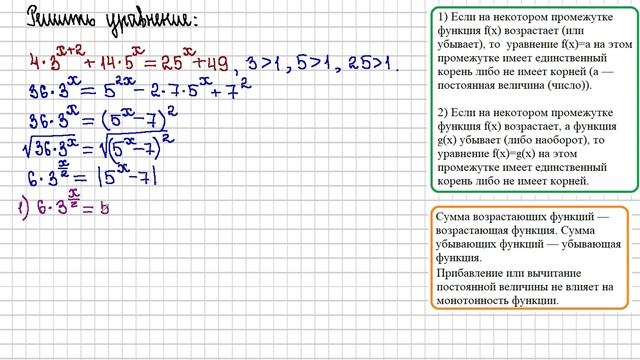 Решить уравнение:
4·3^(x+2) + 14·5^x = 25^x + 49, 3>1, 5>1, 25>1.
36·3^x = 5^(2x) − 2·7·5^x + 7^2
36·3^x = (5^x − 7)^2
√(36·3^x) = √((5^x − 7)^2)
6·3^(x/2) = |5^x − 7|
1) 6·3^(x/2) = 5
1) Если на некотором промежутке
функция f(x) возрастает (или
убывает), то уравнение f(x)=a на этом
промежутке имеет единственный
корень либо не имеет корней (a —
постоянная величина (число)).
2) Если на некотором промежутке
функция f(x) возрастает, а функция
g(x) убывает (либо наоборот), то
уравнение f(x)=g(x) на этом
промежутке имеет единственный
корень либо не имеет корней.
Сумма возрастающих функций —
возрастающая функция. Сумма
убывающих функций — убывающая
функция.
Прибавление или вычитание
постоянной величины не влияет на
монотонность функции.